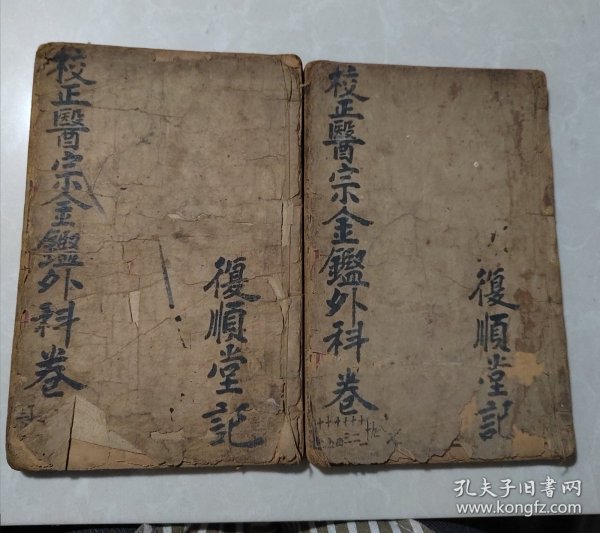 校正醫宗金鑑外科卷
復順堂記
校正醫宗金鑑外科卷
復順堂記
孔夫子旧書网
www.kongfz.com